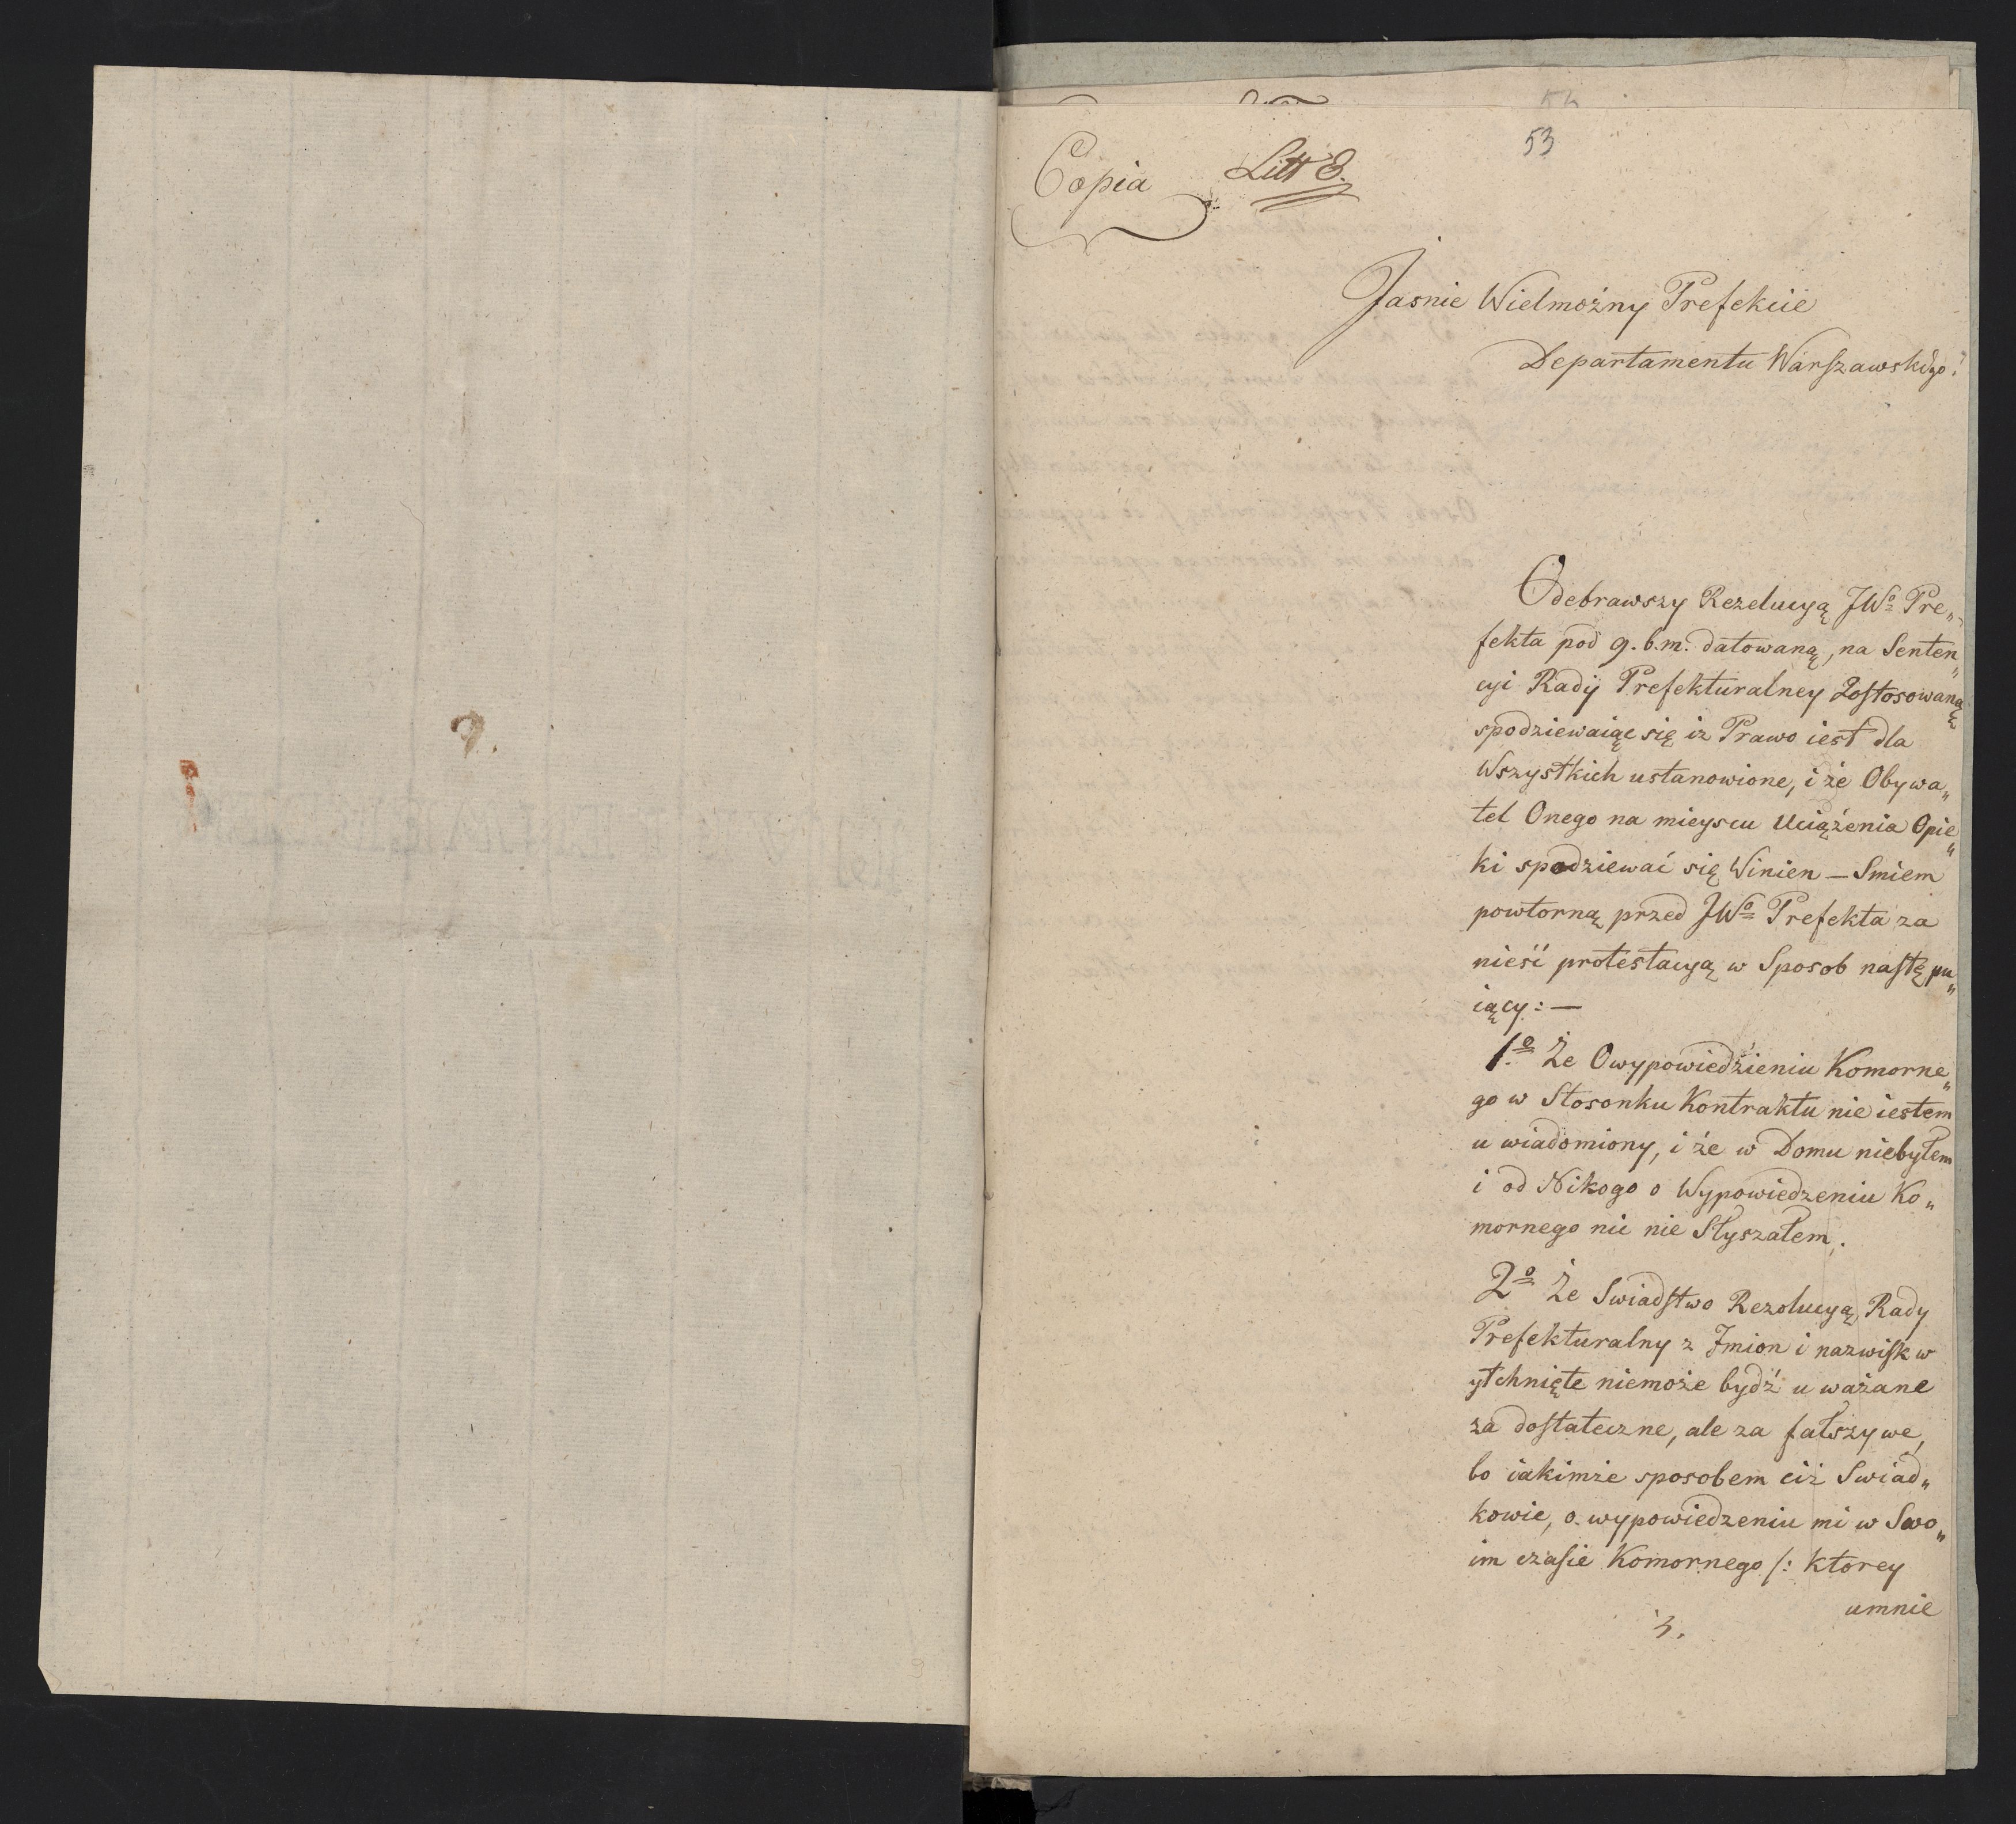 9.
53
Copia Litt E.
Jasnie Wielmożny Prefekcie
Departamentu Warszawskiego!
Odebrawszy Rezelucyą JWº Pre„
fekta pod 9. b. m. datowaną, na Senten„
cyi Rady Prefekturalney Zostosowaną
spodziewaiąc się iz Prawo iest dla
Wszystkich ustanowione, i że Obywa„
tel Onego na mieyscu Uciążenia Opie„
ki spodziewać się Winien — Smiem
powtorną przed JWº Prefekta za
nieść protestacyą w Sposob następu„
iący: —
1.º Że Owypowiedzieniu Komorne„
go w Stosonku Kontraktu nie iestem
u wiadomiony, i że w Domu niebyłem
i od Nikogo o Wypowiedzeniu Ko„
mornego nic nie Słyszałem.
2º Że Swiadstwo Rezolucyą Rady
Prefekturalny z Jmion i nazwisk w
ytchnięte niemoże bydź u ważane
za dostateczne, ale za fałszywe,
bo iakimże sposobem ciż Swiad„
kowie, o wypowiedzeniu mi w Swo„
im czasie Komornego /: ktorey
umnie
3.